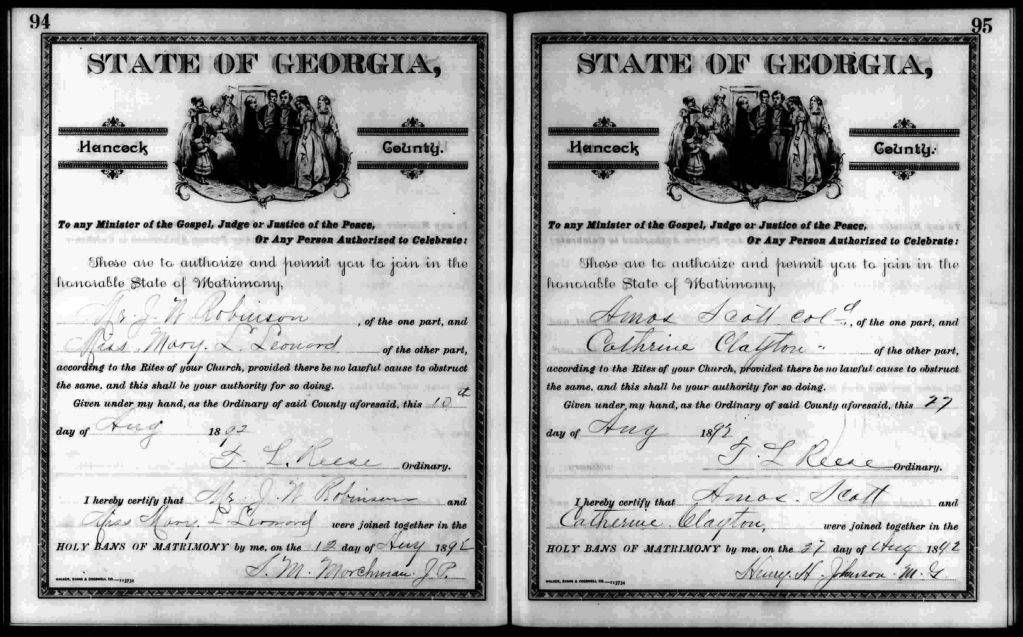 94
STATE OF GEORGIA,
Hancock County.
To any Minister of the Gospel, Judge or Justice of the Peace,
Or Any Person Authorized to Celebrate:
These are to authorize and permit you to join in the
honorable State of Matrimony,
Mr. J. W Robinson, of the one part, and
Miss. Mary. L. Leonard of the other part,
according to the Rites of your Church, provided there be no lawful cause to obstruct
the same, and this shall be your authority for so doing.
Given under my hand, as the Ordinary of said County aforesaid, this 10th
day of Aug 1892
T. L. Reese Ordinary.
I hereby certify that Mr. J. W Robinson and
Miss Mary L Leonard were joined together in the
HOLY BANS OF MATRIMONY by me, on the 12 day of Aug 1892
S. M. J. P.
WALKER, EVANS & COGSWELL CO.
95
STATE OF GEORGIA,
Hancock County.
To any Minister of the Gospel, Judge or Justice of the Peace,
Or Any Person Authorized to Celebrate:
These are to authorize and permit you to join in the
honorable State of Matrimony,
Amos Scott Cold, of the one part, and
Cathrine Clayton " of the other part,
according to the Rites of your Church, provided there be no lawful cause to obstruct
the same, and this shall be your authority for so doing.
Given under my hand, as the Ordinary of said County aforesaid, this 27
day of Aug 1892
T. L Reese Ordinary.
I hereby certify that Amos. Scott and
Catherine Clayton, were joined together in the
HOLY BANS OF MATRIMONY by me, on the 27 day of Aug 1892
Henry H. Johnson. M. G
WALKER, EVANS & COGSWELL CO.